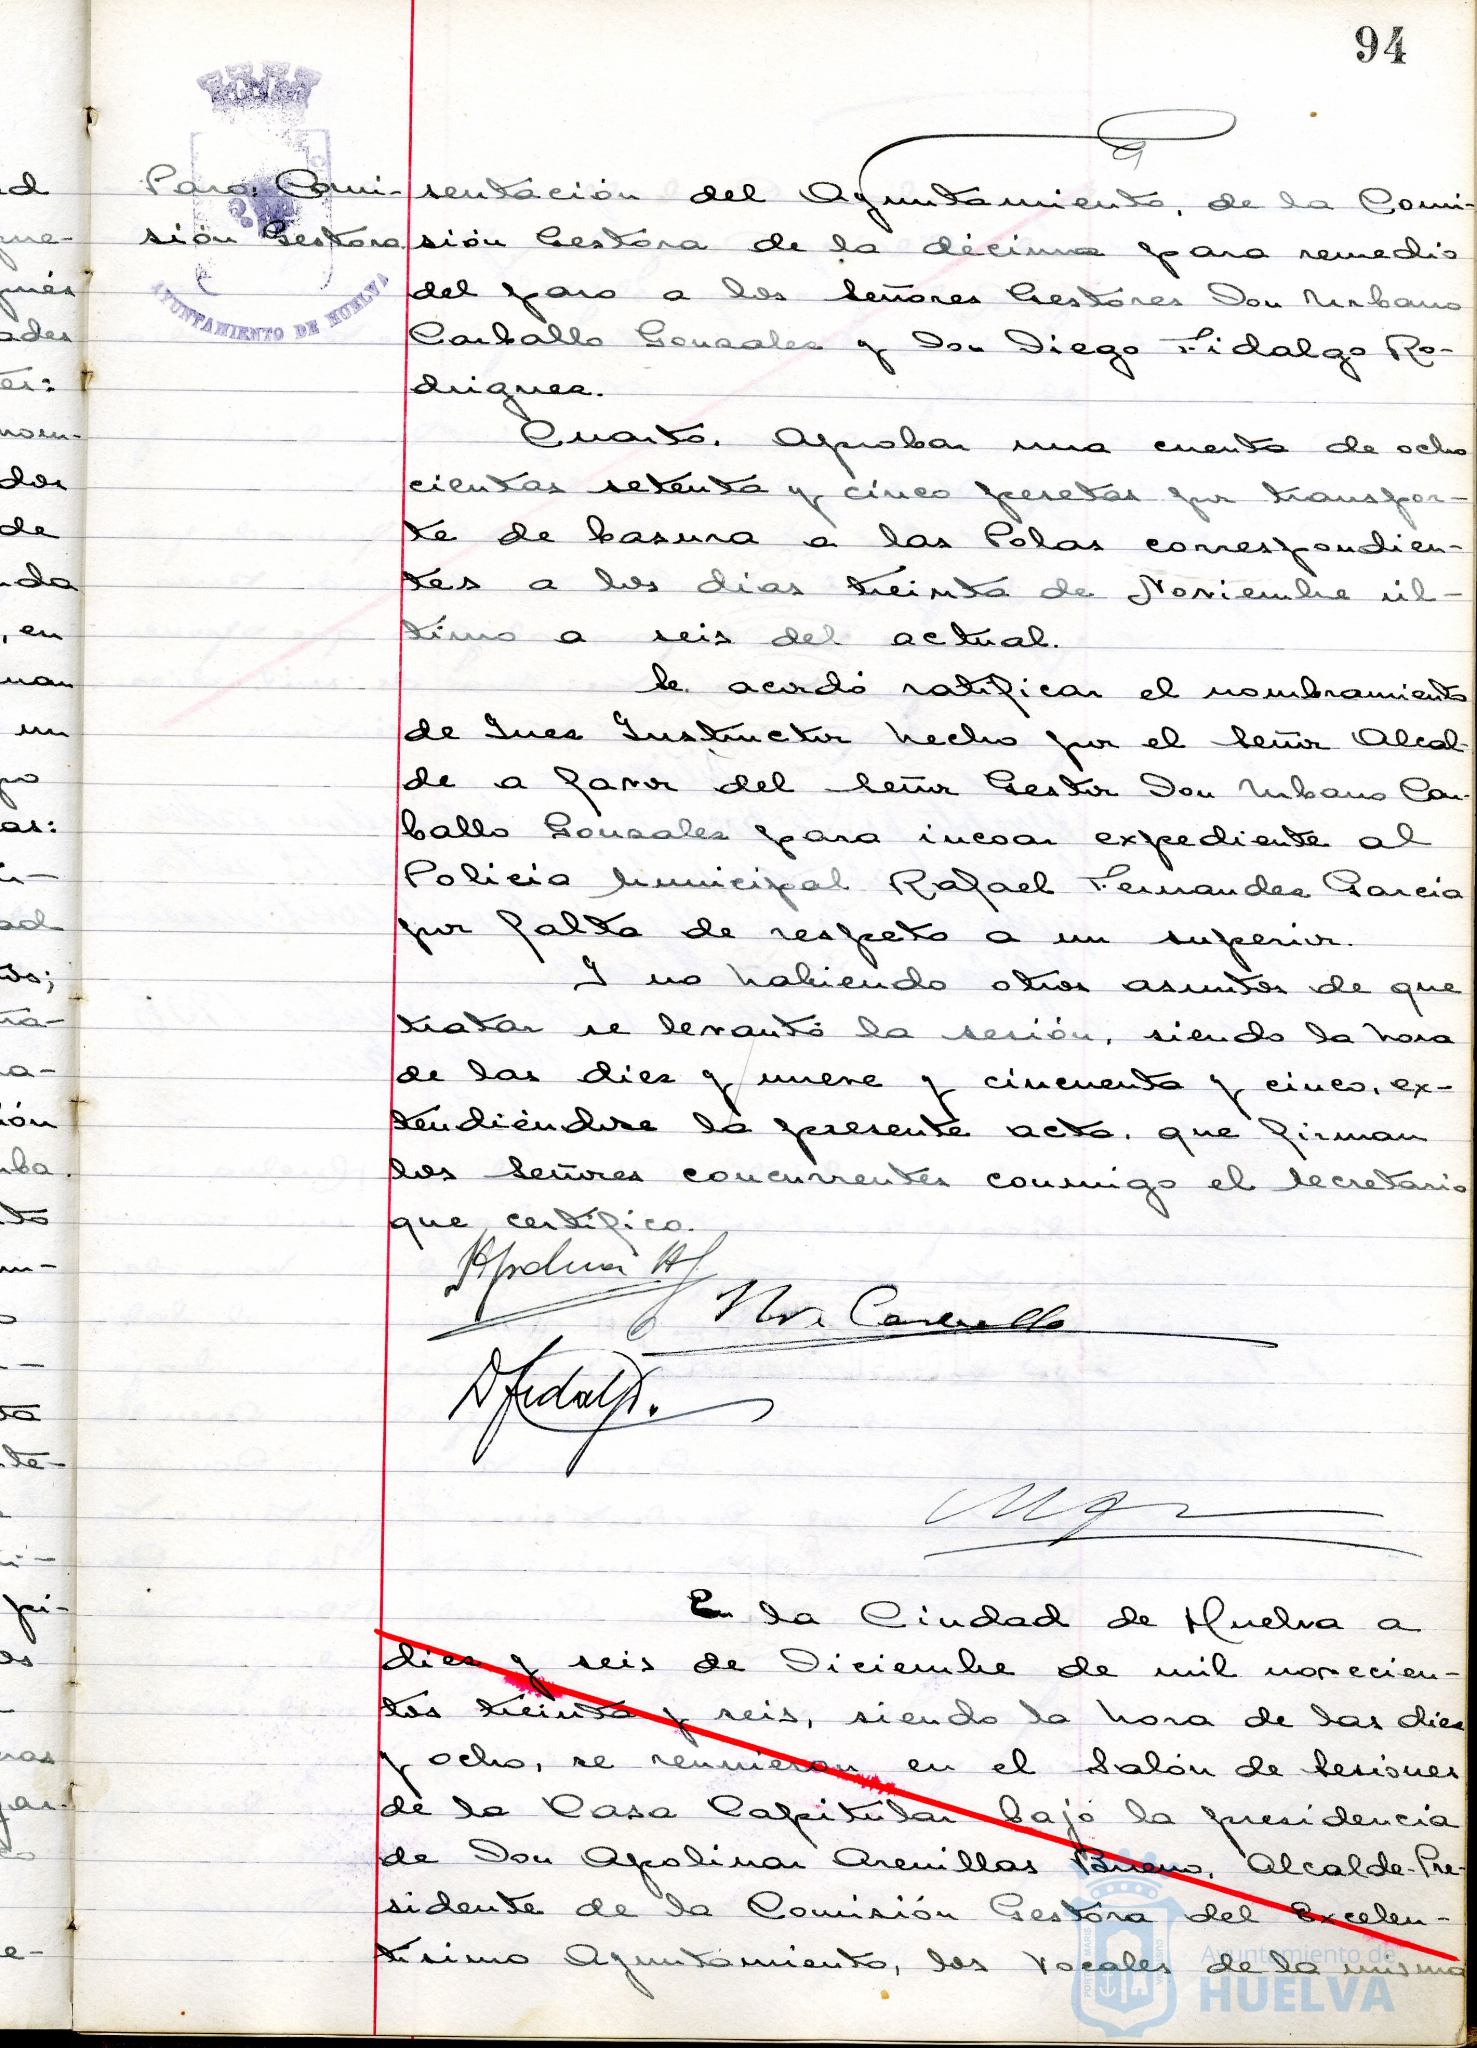 94
Paro: Comi-
sión Gestora
AYUNTAMIENTO DE HUELVA
sentación del Ayuntamiento, de la Comi-
sión Gestora de la décima para remedio
del paro a los Señores Gestores Don Urbano
Carballo Gonzalez y Don Diego Fidalgo Ro-
driguez.
Cuarto. Aprobar una cuenta de ocho
cientas setenta y cinco pesetas por transpor-
te de basura a las Polas correspondien-
tes a los dias treinta de Noviembre úl-
timo a seis del actual.
Se acordó ratificar el nombramiento
de Juez Instructor hecho por el Señor Alcal-
de a favor del Señor Gestor Don Urbano Car-
ballo Gonzalez para incoar expediente al
Policia Municipal Rafael Fernandez Garcia
por falta de respeto a un superior.
Y no habiendo otros asuntos de que
tratar se levantó la sesión, siendo la hora
de las diez y nueve y cincuenta y cinco, ex-
tendiéndose la presente acta, que firman
los Señores concurrentes conmigo el Secretario
que certifico.
Carballo
D Fidalgo.
En la Ciudad de Huelva a
diez y seis de Diciembre de mil novecien-
tos treinta y seis, siendo la hora de las diez
y ocho, se reunieron en el Salón de Sesiones
de la Casa Capitular bajo la presidencia
de Don Apolinar Arenillas Bueno, Alcalde-Pre-
sidente de la Comisión Gestora del Excelen-
tisimo Ayuntamiento, los Vocales de la misma
Ayuntamiento de
HUELVA